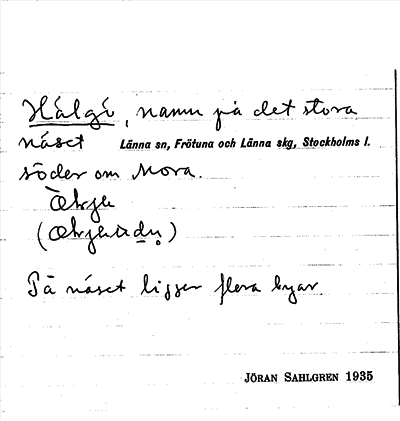 Hálgö, namn på det stora
näset Länna sn, Frötuna och Länna skg, Stockholms l.
söder om Mora.
På näset ligger flera byar
JÖRAN SAHLGREN 1935